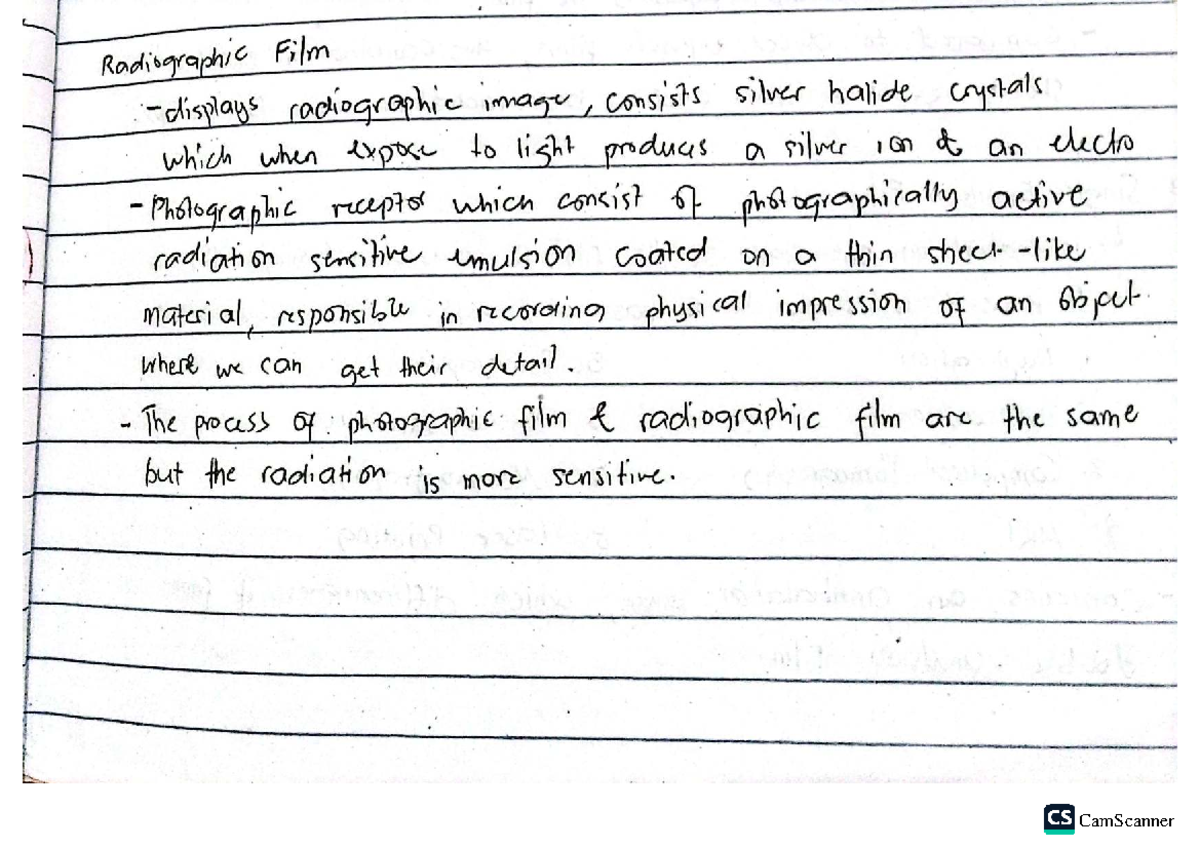 Radiographic Film
- displays radiographic image, consists silver halide crystals
which when expose to light produces a silver ion & an electro
- Photographic receptor which consist of photographically active
radiation sensitive emulsion coated on a thin sheet-like
material, responsible in recording physical impression of an object
where we can get their detail.
- The process of photographic film & radiographic film are the same
but the radiation is more sensitive.
CS CamScanner